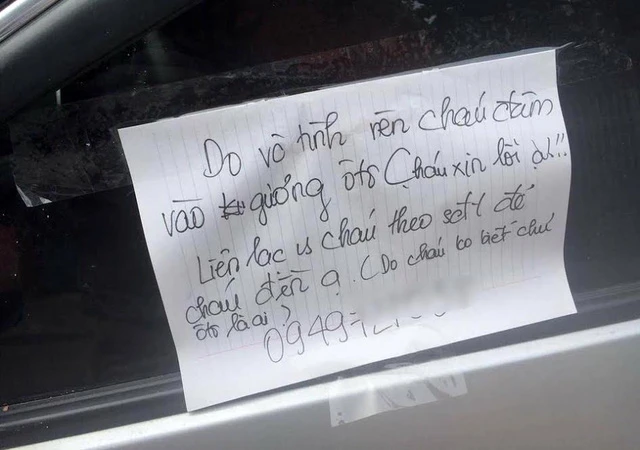 Do vô tình nên cháu đâm
vào gương ôtô Cháu xin lỗi ạ!!
Liên lạc vs cháu theo số đt để
cháu đền ạ. (Do cháu ko biết chủ
ôtô là ai)
0949